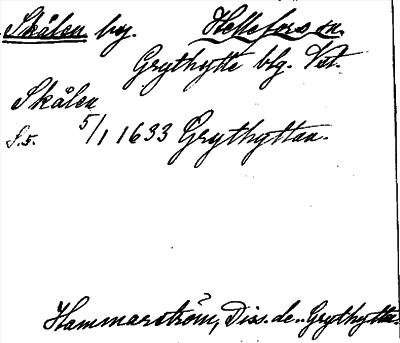 Skålen by. Hellefors sn.
Grythytte blg. Vstm.
Skålen
s. 5. 5/1 1633 Grythyttan.
Hammarström, Diss. de.. Grythytta.